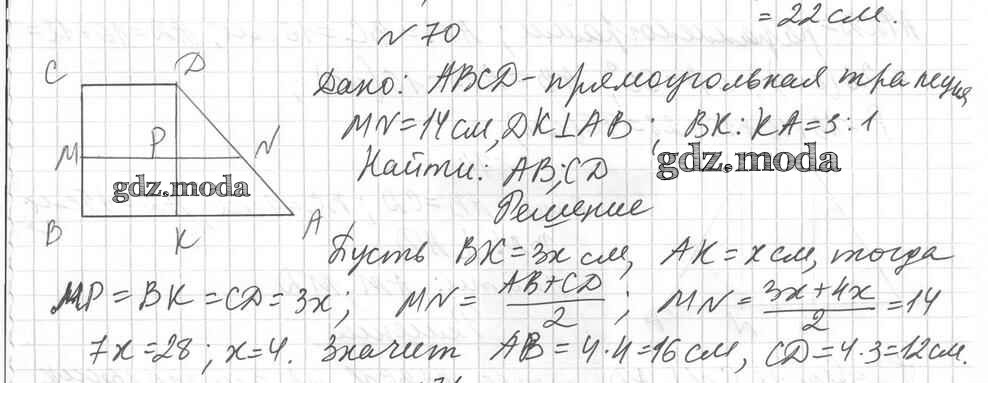 = 22 см.
N 70
Дано: ABCD - прямоугольная трапеция
MN = 14 см, DK ⊥ AB ; BK : KA = 3 : 1
Найти: AB; CD
Решение
Пусть BK = 3x см, AK = x см, тогда
MP = BK = CD = 3x ; MN = (AB + CD)/2 ; MN = (3x + 4x)/2 = 14
7x = 28 ; x = 4. Значит AB = 4 · 4 = 16 см, CD = 4 · 3 = 12 см.
C D
M P N
B K A
gdz.moda
gdz.moda